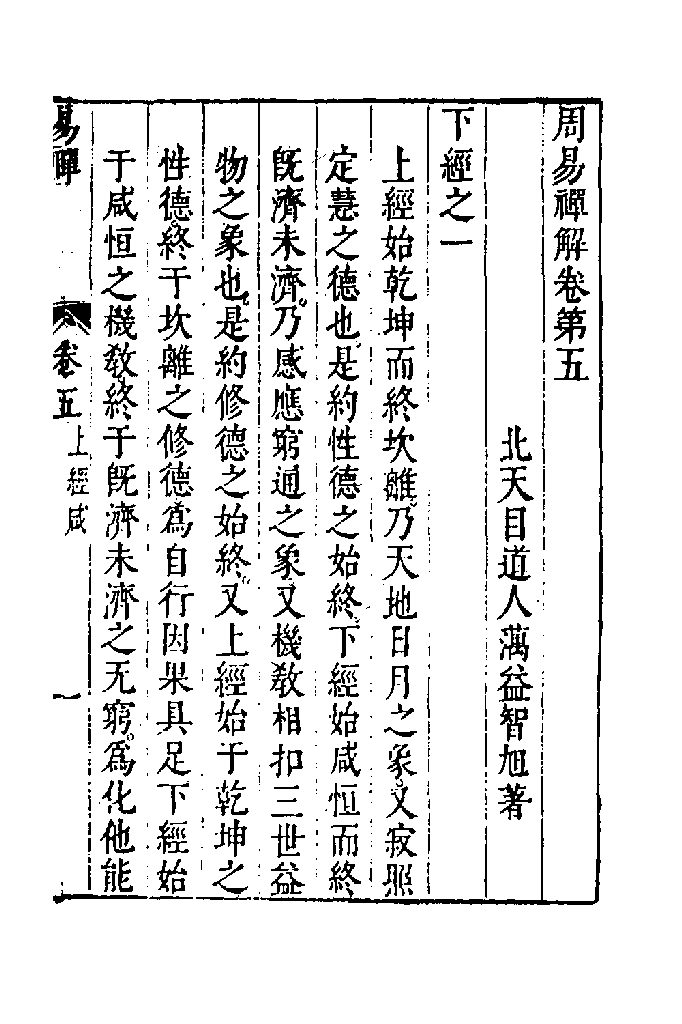 周易禪解卷第五
北天目道人蕅益智旭著
下經之一
上經始乾坤而終坎離乃天地日月之象又寂照
定慧之德也是約性德之始終下經始咸恒而終
旣濟未濟乃感應窮通之象又機敎相扣三世益
物之象也是約修德之始終又上經始于乾坤之
性德終于坎離之修德爲自行因果具足下經始
于咸恒之機敎終于旣濟未濟之无窮爲化他能
易禪 卷五 上經咸 一